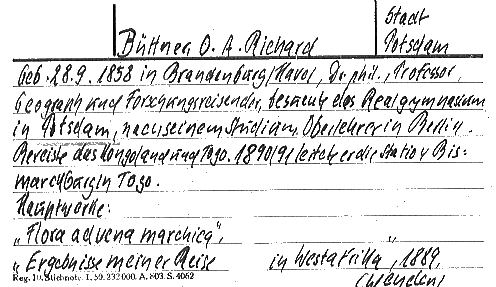 Stadt
Büttner O. A. Richard Potsdam
Geb. 28.9. 1858 in Brandenburg/Havel, Dr. phil., Professor,
Geograph und Forschungsreisender, besuchte das Realgymnasium
in Potsdam, nach seinem Studium Oberlehrer in Berlin.
Bereiste das Kongoland und Togo. 1890/91 leitete er die Station Bis-
marckburg in Togo.
Hauptwerke:
„Flora advena marchica",
„Ergebnisse meiner Reise in Westafrika", 1889,
Reg. 10. Stichnote. I. 59. 232 000. A. 803. S. 4062
(wenden)